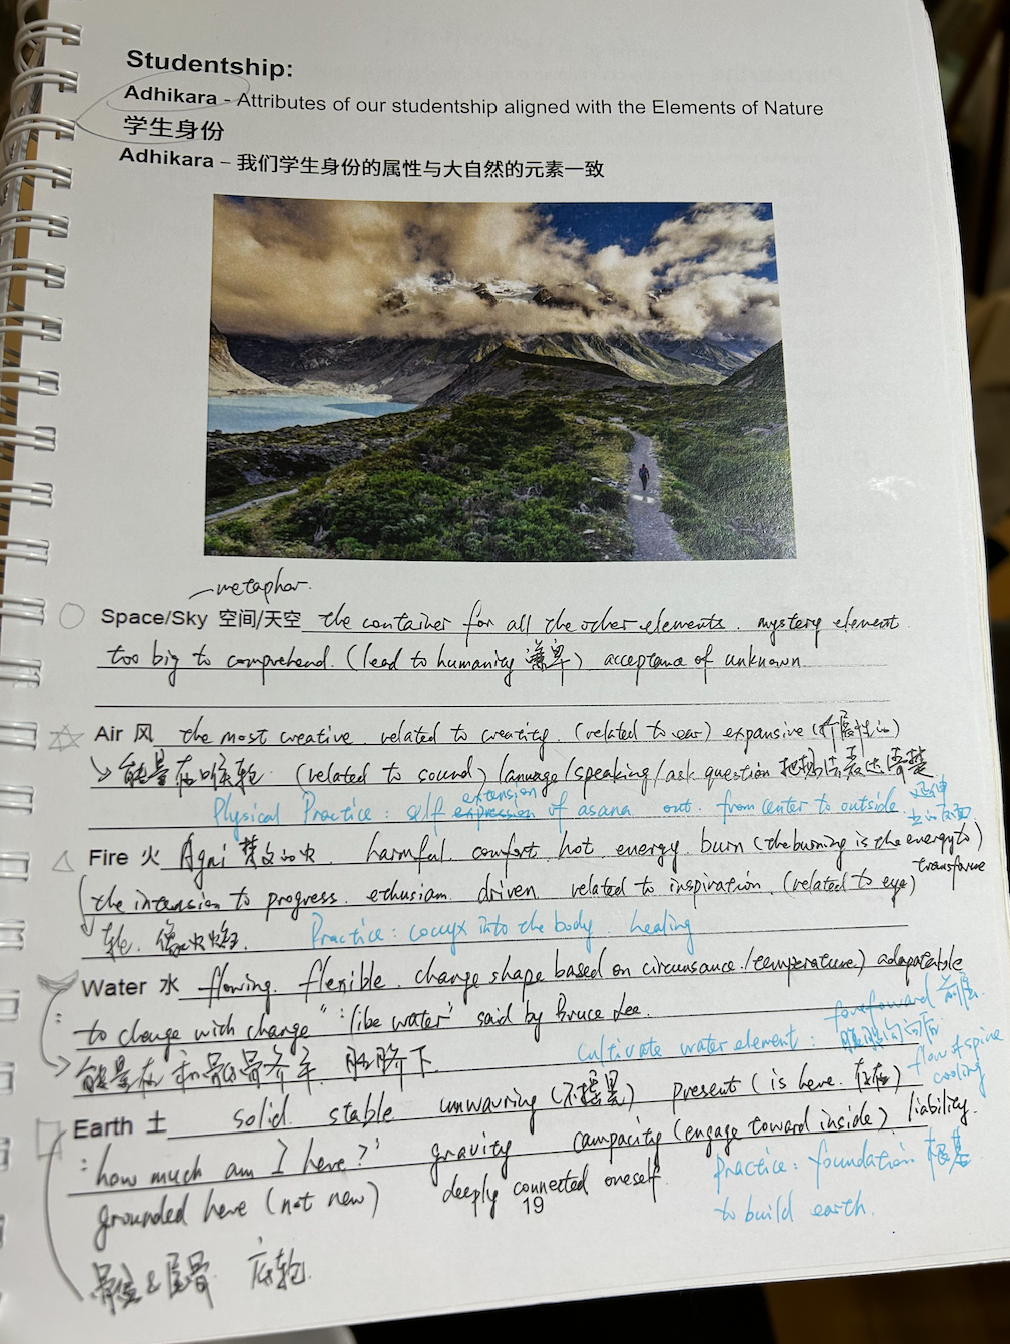 Studentship:
Adhikara - Attributes of our studentship aligned with the Elements of Nature
学生身份
Adhikara – 我们学生身份的属性与大自然的元素一致
metaphor.
Space/Sky 空间/天空 the container for all the other elements. mystery element
too big to comprehend. (lead to humanity 谦卑) acceptance of unknown
Air 风 the most creative. related to creativity. (related to ear) expansive
能量在喉轮. (related to sound) /speaking/ask question 把想法表达清楚
extension 延伸
Physical Practice: self expression of asana out. from center to outside
Fire 火 Agni 梵文的火. harmful. comfort hot. energy. burn (the burning is the energy to)
transforme
the intension to progress. ethusiam. driven related to inspiration. (related to eye)
Practice: coccyx into the body. healing
Water 水 flowing. flexible. change shape based on circumsance./temperature) adapatable
to change with change "like water" said by Bruce Lee.
Cultivate water element:
能量在 肚脐下. flow of spine
cooling
Earth 土 solid. stable unwavring (不摇晃) present (is here. 存在)
: how much am I here?" gravity campacity (engage toward inside) liability.
Practice: foundation 根基
grounded here (not new) deeply connected oneself.
to build earth.
19
尾骨 底轮.